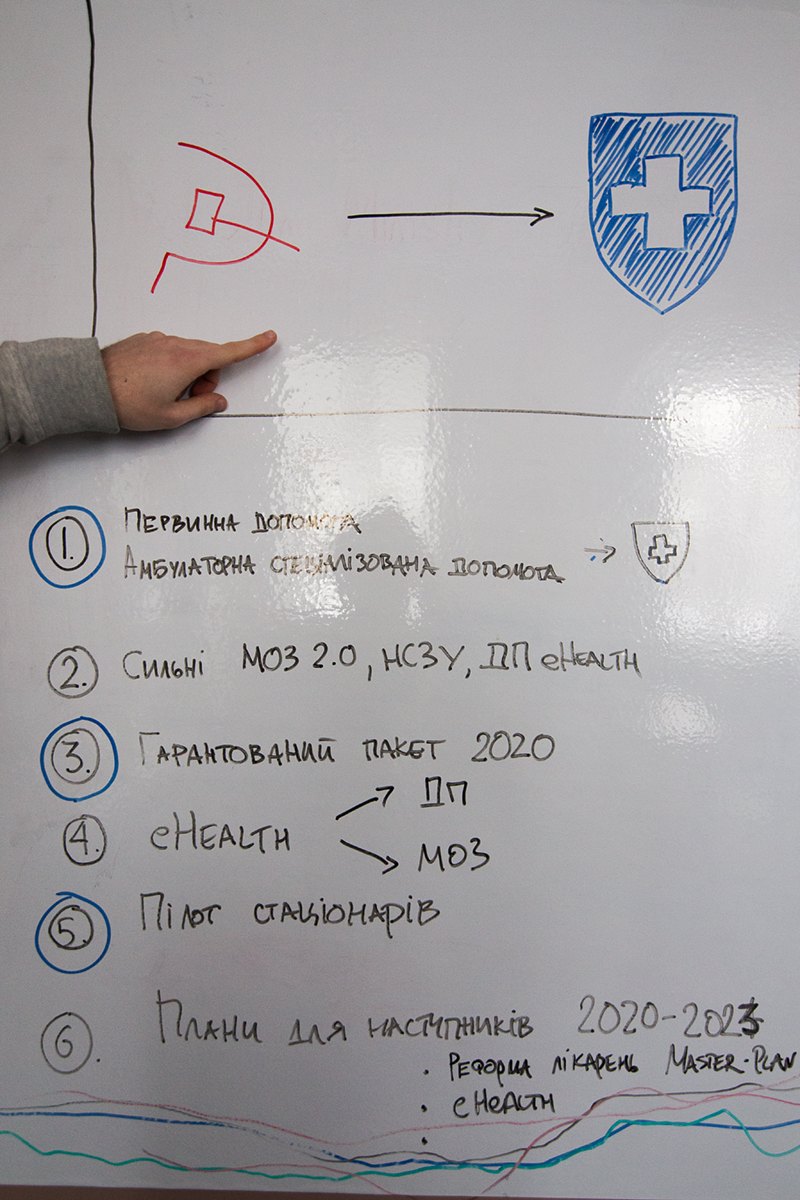 1. Первинна допомога
Амбулаторна спеціалізована допомога
2. Сильні МОЗ 2.0, НСЗУ, ДП eHealth
3. Гарантований пакет 2020
ДП
4. eHealth
МОЗ
5. Пілот стаціонарів
6. Плани для наступників 2020-2023
• Реформа лікарень Master-Plan
• eHealth
•